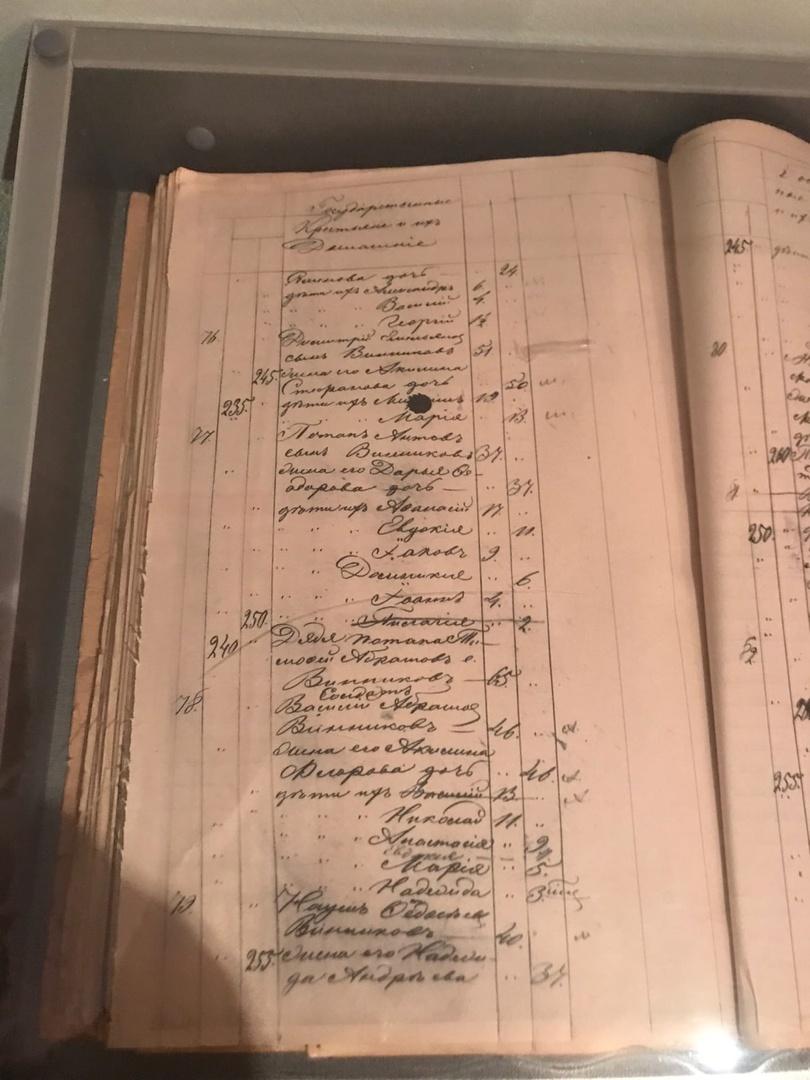 Государственные
Крестьяне и ихъ
Домашніе
дочь — 24
дѣти ихъ Александръ 6.
" " Василій 4.
" " Георгій 1½
76. Дмитрій
сынъ Винниковъ 51
245. жена его Акилина
Стефанова дочь 50
235. дѣти ихъ 19
" " Марія 13.
77 Потапъ Антовъ
сынъ Винниковъ 37.
жена его Дарья Ѳе-
одорова дочь — 37.
дѣти ихъ Аѳанасій 17.
" " Евдокія 11.
" " Іаковъ 9.
" " Домникия 6.
" " Іоаннъ 4.
250. " " Пелагія 2.
240 Дядя Потапа Ти-
моѳей Абрамовъ с.
Винниковъ — 65
78. Солдатъ
Василій Абрамов
Винниковъ — 46.
жена его Акилина
Флорова дочь 46.
дѣти ихъ Василій 13
" " Николай 11.
" " Анастасія 9.
Евдокия
" " Марія 5.
" " Надежда 3.
79. Наумъ Ѳедосѣев
Винниковъ — 40.
255. жена его Надеж-
да Андрѣева 37.
245
80
260
250.
82
255.